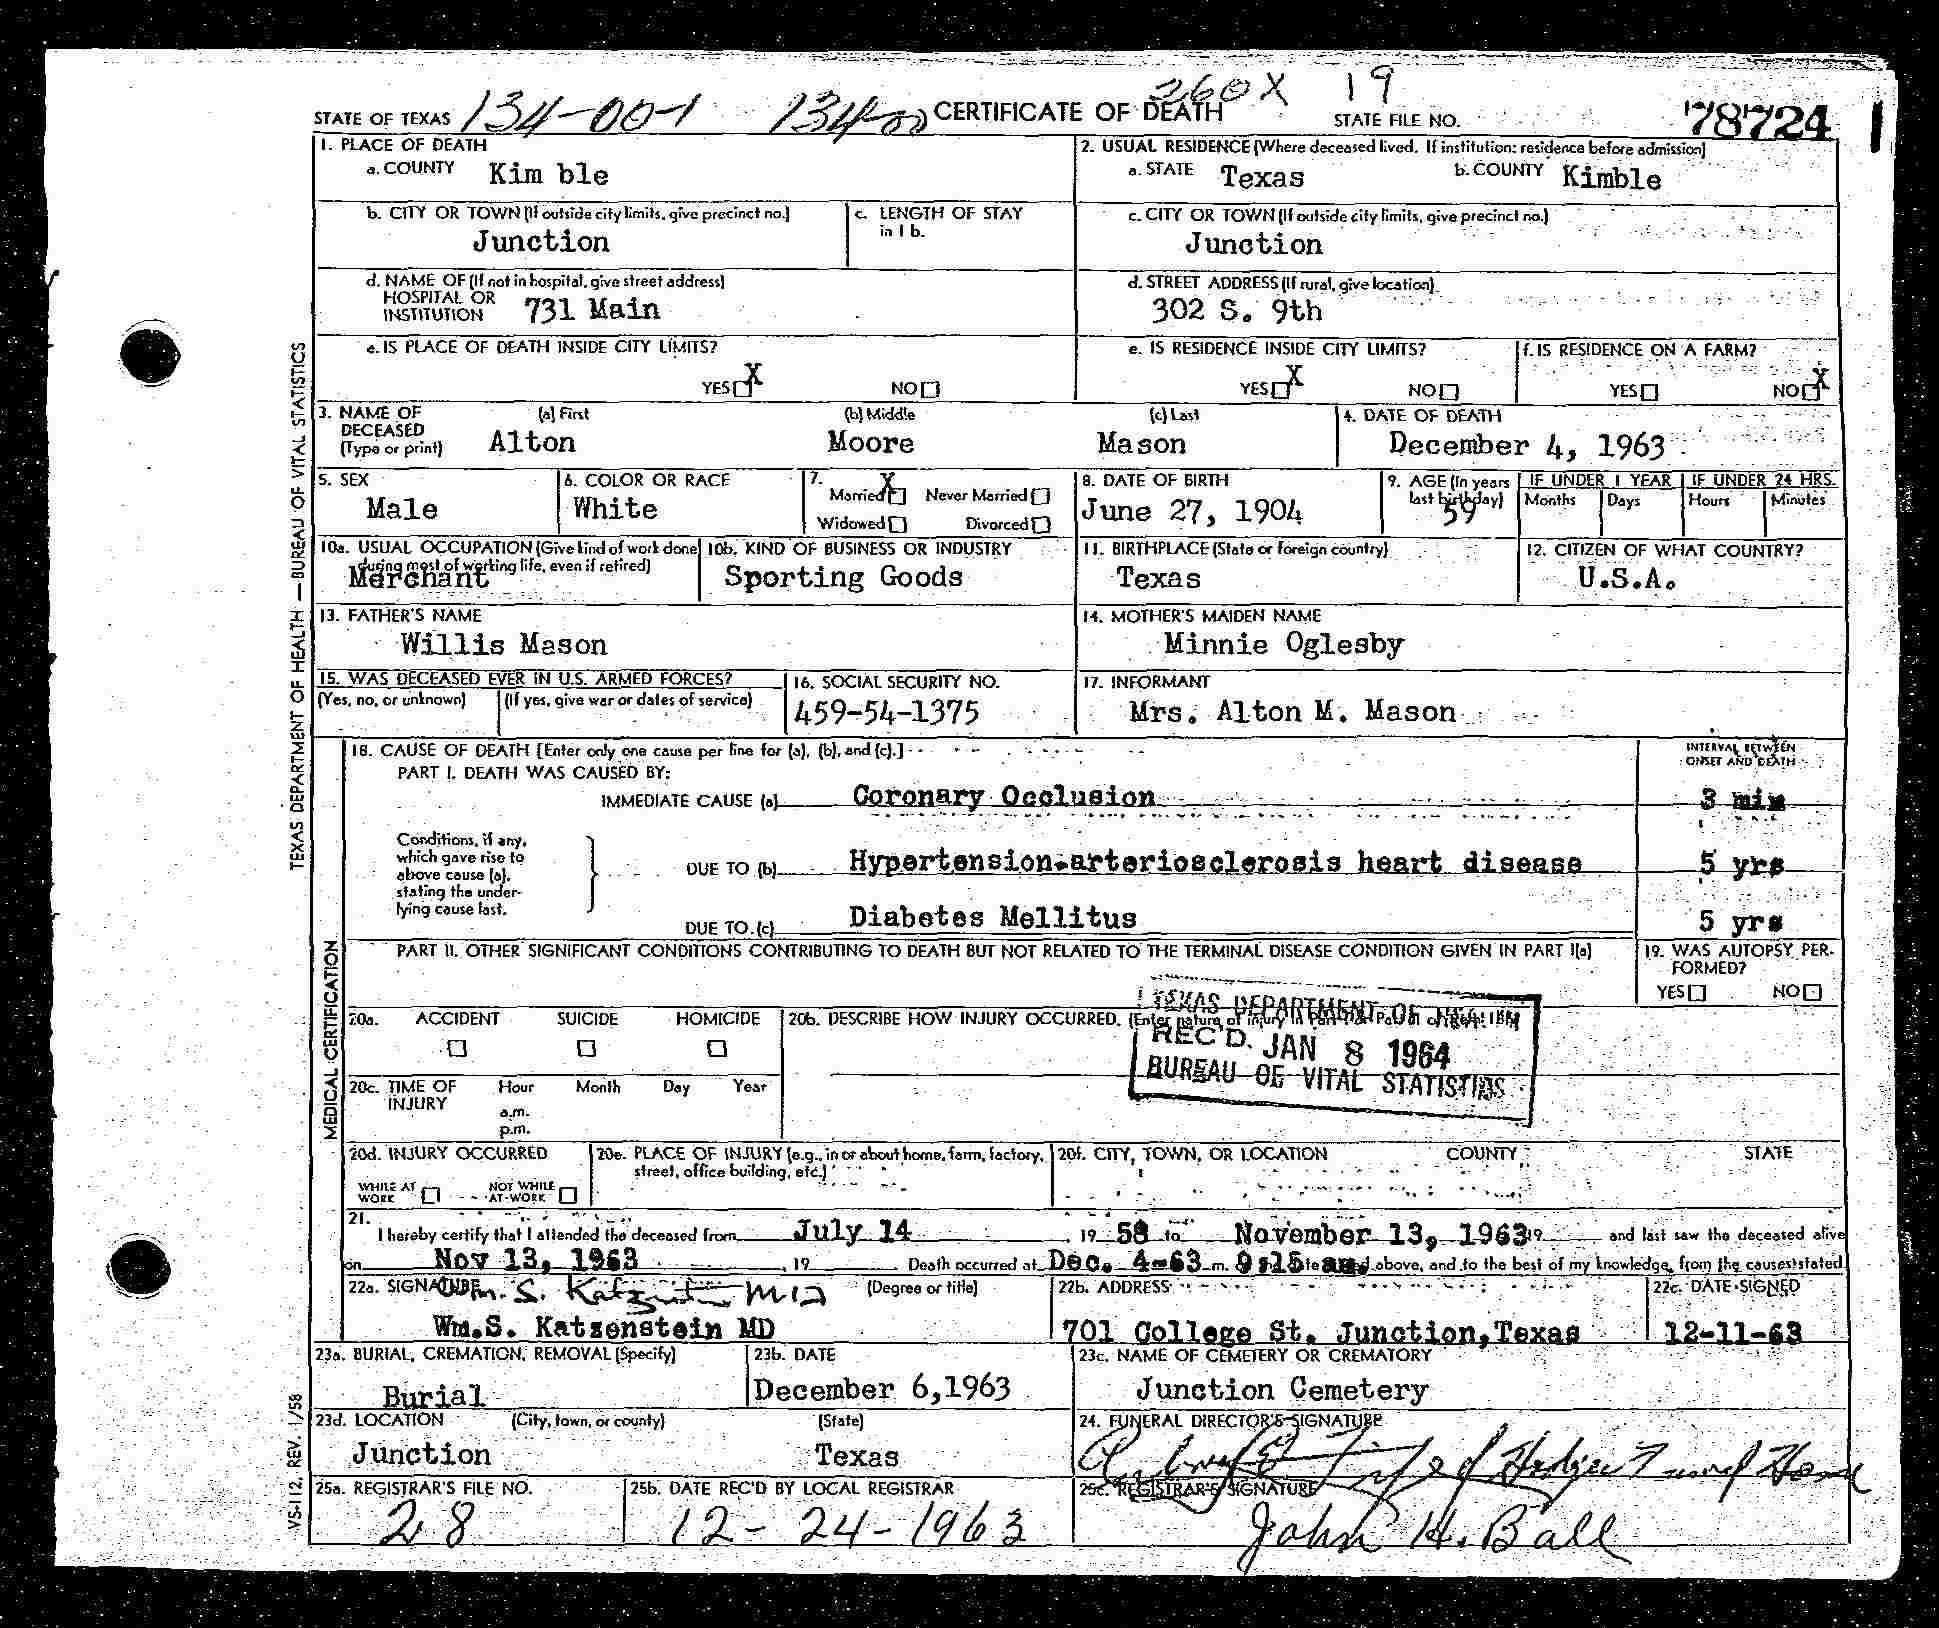 260X 19
STATE OF TEXAS 134-00-1 134-00 CERTIFICATE OF DEATH STATE FILE NO. 78724 1
1. PLACE OF DEATH
a. COUNTY Kim ble
2. USUAL RESIDENCE (Where deceased lived. If institution: residence before admission)
a. STATE Texas b. COUNTY Kimble
b. CITY OR TOWN (If outside city limits, give precinct no.)
Junction
c. LENGTH OF STAY
in 1 b.
c. CITY OR TOWN (If outside city limits, give precinct no.)
Junction
d. NAME OF (If not in hospital, give street address)
HOSPITAL OR
INSTITUTION 731 Main
d. STREET ADDRESS (If rural, give location)
302 S. 9th
e. IS PLACE OF DEATH INSIDE CITY LIMITS?
YES X NO
e. IS RESIDENCE INSIDE CITY LIMITS?
YES X NO
f. IS RESIDENCE ON A FARM?
YES NO X
3. NAME OF
DECEASED
(Type or print)
(a) First (b) Middle (c) Last
Alton Moore Mason
4. DATE OF DEATH
December 4, 1963
5. SEX
Male
6. COLOR OR RACE
White
7. X
Married Never Married
Widowed Divorced
8. DATE OF BIRTH
June 27, 1904
9. AGE (In years
last birthday)
59
IF UNDER 1 YEAR
Months Days
IF UNDER 24 HRS.
Hours Minutes
10a. USUAL OCCUPATION (Give kind of work done
during most of working life, even if retired)
Merchant
10b. KIND OF BUSINESS OR INDUSTRY
Sporting Goods
11. BIRTHPLACE (State or foreign country)
Texas
12. CITIZEN OF WHAT COUNTRY?
U.S.A.
13. FATHER'S NAME
Willis Mason
14. MOTHER'S MAIDEN NAME
Minnie Oglesby
15. WAS DECEASED EVER IN U.S. ARMED FORCES?
(Yes, no, or unknown) (If yes, give war or dates of service)
16. SOCIAL SECURITY NO.
459-54-1375
17. INFORMANT
Mrs. Alton M. Mason
18. CAUSE OF DEATH [Enter only one cause per line for (a), (b), and (c).]
INTERVAL BETWEEN
ONSET AND DEATH
PART I. DEATH WAS CAUSED BY:
IMMEDIATE CAUSE (a) Coronary Occlusion 3 min
Conditions, if any,
which gave rise to
above cause (a),
stating the under-
lying cause last.
DUE TO (b) Hypertension-arteriosclerosis heart disease 5 yrs
DUE TO (c) Diabetes Mellitus 5 yrs
PART II. OTHER SIGNIFICANT CONDITIONS CONTRIBUTING TO DEATH BUT NOT RELATED TO THE TERMINAL DISEASE CONDITION GIVEN IN PART I(a)
19. WAS AUTOPSY PER-
FORMED?
YES NO
20a. ACCIDENT SUICIDE HOMICIDE
20b. DESCRIBE HOW INJURY OCCURRED. (Enter nature of injury in Part I or Part II of item 18.)
TEXAS DEPARTMENT OF HEALTH
REC'D. JAN 8 1964
BUREAU OF VITAL STATISTICS
20c. TIME OF
INJURY
Hour Month Day Year
a.m.
p.m.
20d. INJURY OCCURRED
WHILE AT
WORK
NOT WHILE
AT WORK
20e. PLACE OF INJURY (e.g., in or about home, farm, factory,
street, office building, etc.)
20f. CITY, TOWN, OR LOCATION COUNTY STATE
21.
I hereby certify that I attended the deceased from July 14, 19 58 to November 13, 1963 19 and last saw the deceased alive
on Nov 13, 1963, 19 Death occurred at Dec. 4-63 m. 9:15 above, and to the best of my knowledge, from the causes stated
22a. SIGNATURE Wm. S. Katzenstein MD (Degree or title)
Wm.S. Katzenstein MD
22b. ADDRESS
701 College St. Junction,Texas
22c. DATE SIGNED
12-11-63
23a. BURIAL, CREMATION, REMOVAL (Specify)
Burial
23b. DATE
December 6,1963
23c. NAME OF CEMETERY OR CREMATORY
Junction Cemetery
23d. LOCATION (City, town, or county) (State)
Junction Texas
24. FUNERAL DIRECTOR'S SIGNATURE
Funeral Home
25a. REGISTRAR'S FILE NO.
28
25b. DATE REC'D BY LOCAL REGISTRAR
12-24-1963
25c. REGISTRAR'S SIGNATURE
John H. Ball
TEXAS DEPARTMENT OF HEALTH — BUREAU OF VITAL STATISTICS
MEDICAL CERTIFICATION
VS-112, REV. 1/58